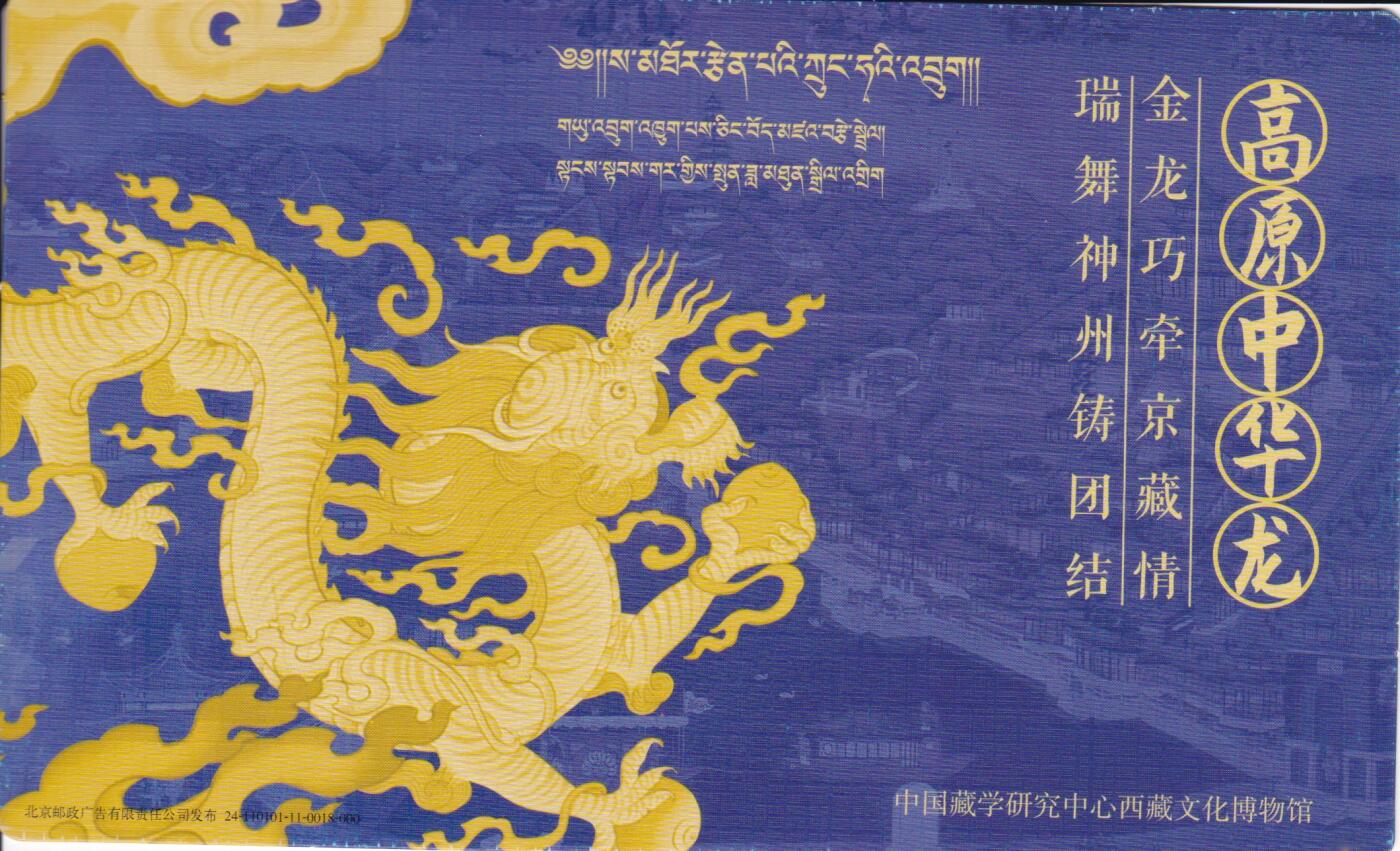 ༄༅།།ས་མཐོར་རྩེན་པའི་ཀྲུང་ཧའི་འབྲུག།།
གཡུ་འབྲུག་འཁྱུག་པས་ཅིང་བོད་མཛའ་བརྩེ་སྦྲེལ།
སྟངས་སྟབས་གར་གྱིས་སྤུན་ཟླ་མཐུན་སྒྲིལ་འགྲིག
高原中华龙
金龙巧牵京藏情
瑞舞神州铸团结
北京邮政广告有限责任公司发布 24-110101-11-0018-000
中国藏学研究中心西藏文化博物馆